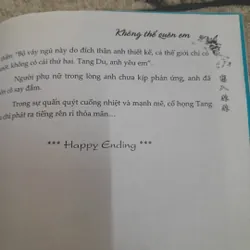 Không thể quên em
thầm: "Bộ váy ngủ này do đích thân anh thiết kế, cả thế giới chỉ có
một, không có cái thứ hai. Tang Du, anh yêu em".
Người phụ nữ trong lòng anh chưa kịp phản ứng, anh đã
hôn cô say đắm.
Trong sự quấn quýt cuồng nhiệt và mạnh mẽ, cổ họng Tang
chỉ phát ra tiếng rên rỉ thỏa mãn...
*** Happy Ending ***